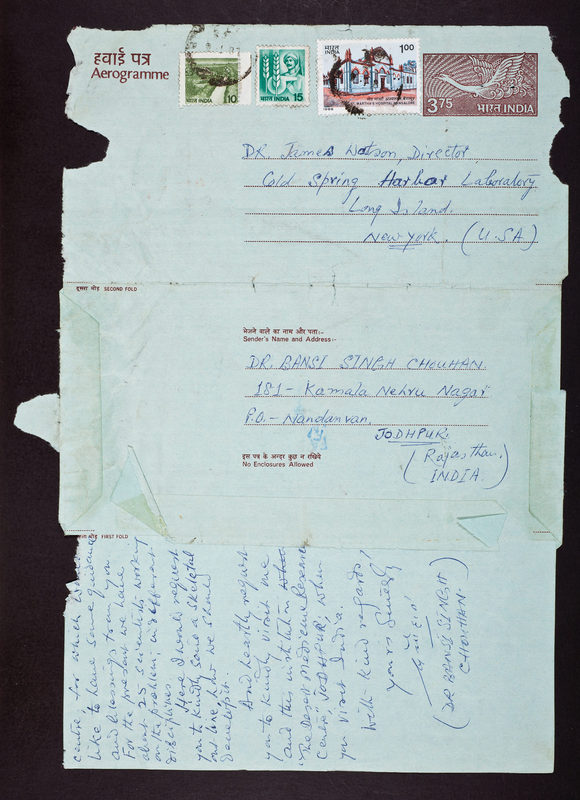 हवाई पत्र
Aerogramme
भारत INDIA 10
भारत INDIA 15
भारत INDIA 1.00
ST. MARTHA'S HOSPITAL, BANGALORE
1986
3.75
भारत INDIA
DR. James Watson, Director
Cold Spring Harbor Laboratory
Long Island.
New York. (U.S.A)
दूसरा मोड़ SECOND FOLD
भेजने वाले का नाम और पता:-
Sender's Name and Address:-
DR. BANSI SINGH CHOUHAN.
181- Kamala Nehru Nagar
P.O.- Nandanvan,
JODHPUR.
(Rajasthan.)
INDIA.
इस पत्र के अन्दर कुछ न रखिये
No Enclosures Allowed
मोड़ FIRST FOLD
centre for which
like to have some guidance
and blessings from you
For the present we have
about 25 scientists working
on the problem, in different
disciplines.
Here I would request
you to kindly send a skeletal
out line, how we should
develop it.
And heartly request
you to kindly visit me
and this institution
"The Desert Medicine Research
Centre," JODHPUR, when
you visit India.
With kind regards!
yours sincerely
(DR BANSI SINGH
CHOUHAN.)